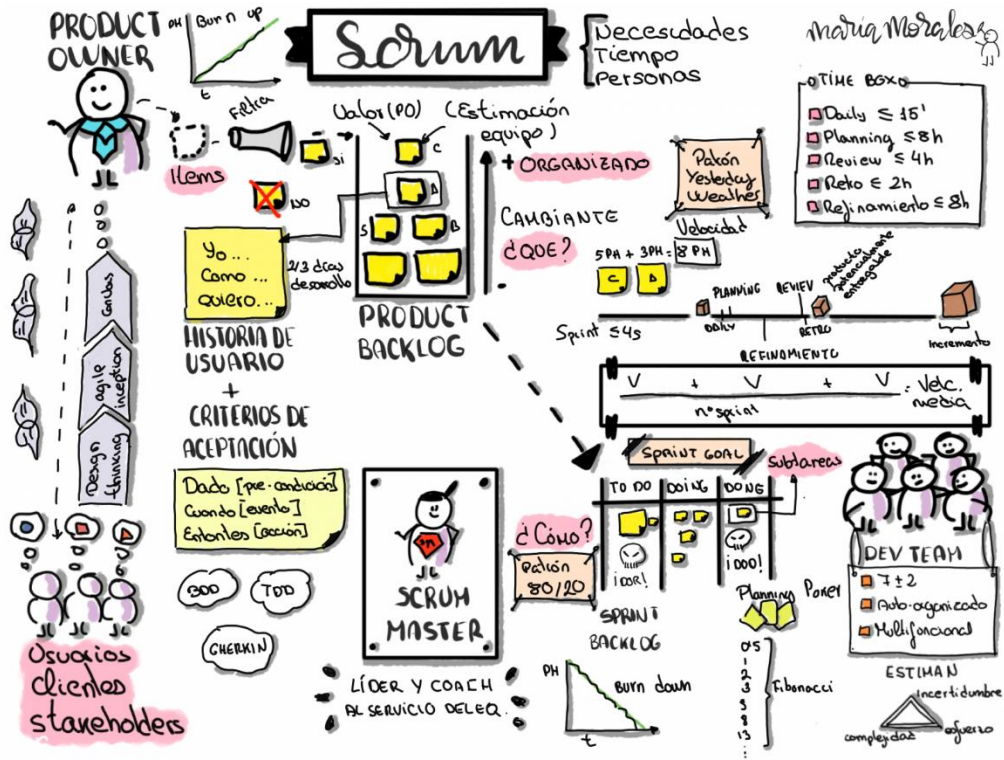 PRODUCT
OWNER
PH
Burn up
t
Scrum
Necesidades
Tiempo
Personas
maria Morales
TIME BOX
Daily ≤ 15'
Planning ≤ 8h
Review ≤ 4h
Retro ≤ 2h
Refinamiento ≤ 8h
Filtra
Items
Si
NO
Valor (PO)
(Estimación
equipo)
C
D
S
B
+ ORGANIZADO
CAMBIANTE
¿QUE?
-
Patrón
Yesterday
Weather
Velocidad
5PH + 3PH = 8 PH
C
D
Yo ...
Como ...
Quiero ...
2/3 días
desarrollo
PRODUCT
BACKLOG
HISTORIA DE
USUARIO
+
CRITERIOS DE
ACEPTACIÓN
Dado [pre-condición]
Cuando [evento]
Entontes [acción]
BDD
TDD
GHERKIN
Canvas
agile
inception
Design
thinking
Usuarios
clientes
stakeholders
Sprint ≤ 4s
PLANNING
DAILY
REVIEW
RETRO
REFINAMIENTO
producto
potencialmente
entregable
Incremento
V + V + V = Veloc.
media
nº sprint
SPRINT GOAL
Subtareas
TO DO
DOING
DONE
¡DOR!
¡DOD!
¿CÓMO?
Patrón
80/20
SPRINT
BACKLOG
SM
SCRUM
MASTER
LÍDER Y COACH
AL SERVICIO DEL EQ.
PH
Burn down
t
Planning Poker
0'5
1
2
3
5
8
13
⋮
Fibonacci
DEV TEAM
7±2
Auto-organizado
Multifuncional
ESTIMAN
incertidumbre
complejidad
esfuerzo